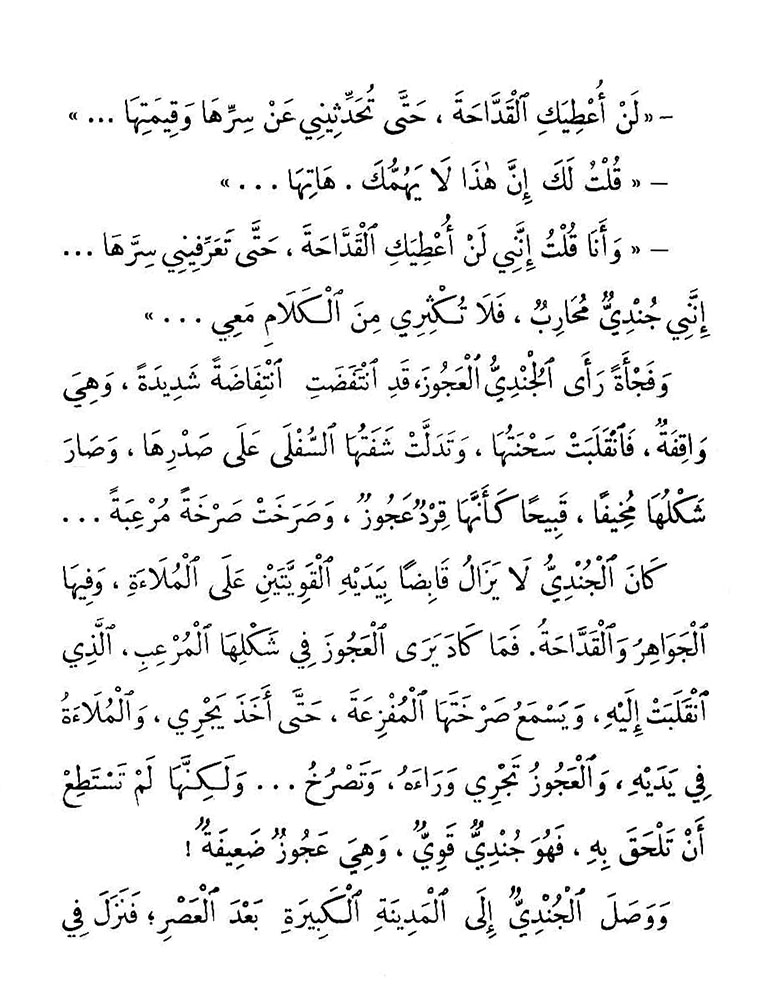 – «لَنْ أُعْطِيَكِ ٱلْقَدَّاحَةَ ، حَتَّى تُحَدِّثِينِي عَنْ سِرِّهَا وَقِيمَتِهَا ... »
– « قُلْتُ لَكَ إِنَّ هٰذَا لَا يَهُمُّكَ . هَاتِهَا ... »
– « وَأَنَا قُلْتُ إِنَّنِي لَنْ أُعْطِيَكِ ٱلْقَدَّاحَةَ ، حَتَّى تُعَرِّفِينِي سِرَّهَا ...
إِنَّنِي جُنْدِيٌّ مُحَارِبٌ ، فَلَا تُكْثِرِي مِنَ ٱلْكَلَامِ مَعِي ... »
وَفَجْأَةً رَأَى ٱلْجُنْدِيُّ ٱلْعَجُوزَ، قَدِ ٱنْتَفَضَتِ ٱنْتِفَاضَةً شَدِيدَةً ، وَهِيَ
وَاقِفَةٌ ، فَٱنْقَلَبَتْ سَحْنَتُهَا ، وَتَدَلَّتْ شَفَتُهَا ٱلسُّفْلَى عَلَى صَدْرِهَا ، وَصَارَ
شَكْلُهَا مُخِيفًا ، قَبِيحًا كَأَنَّهَا قِرْدٌ عَجُوزٌ ، وَصَرَخَتْ صَرْخَةً مُرْعِبَةً ...
كَانَ ٱلْجُنْدِيُّ لَا يَزَالُ قَابِضًا بِيَدَيْهِ ٱلْقَوِيَّتَيْنِ عَلَى ٱلْمُلَاءَةِ ، وَفِيهَا
ٱلْجَوَاهِرُ وَٱلْقَدَّاحَةُ. فَمَا كَادَ يَرَى ٱلْعَجُوزَ فِي شَكْلِهَا ٱلْمُرْعِبِ ، ٱلَّذِي
ٱنْقَلَبَتْ إِلَيْهِ ، وَيَسْمَعُ صَرْخَتَهَا ٱلْمُفْزِعَةَ ، حَتَّى أَخَذَ يَجْرِي ، وَٱلْمُلَاءَةُ
فِي يَدَيْهِ ، وَٱلْعَجُوزُ تَجْرِي وَرَاءَهُ ، وَتَصْرُخُ ... وَلَكِنَّهَا لَمْ تَسْتَطِعْ
أَنْ تَلْحَقَ بِهِ ، فَهُوَ جُنْدِيٌّ قَوِيٌّ ، وَهِيَ عَجُوزٌ ضَعِيفَةٌ !
وَوَصَلَ ٱلْجُنْدِيُّ إِلَى ٱلْمَدِينَةِ ٱلْكَبِيرَةِ بَعْدَ ٱلْعَصْرِ ؛ فَنَزَلَ فِي